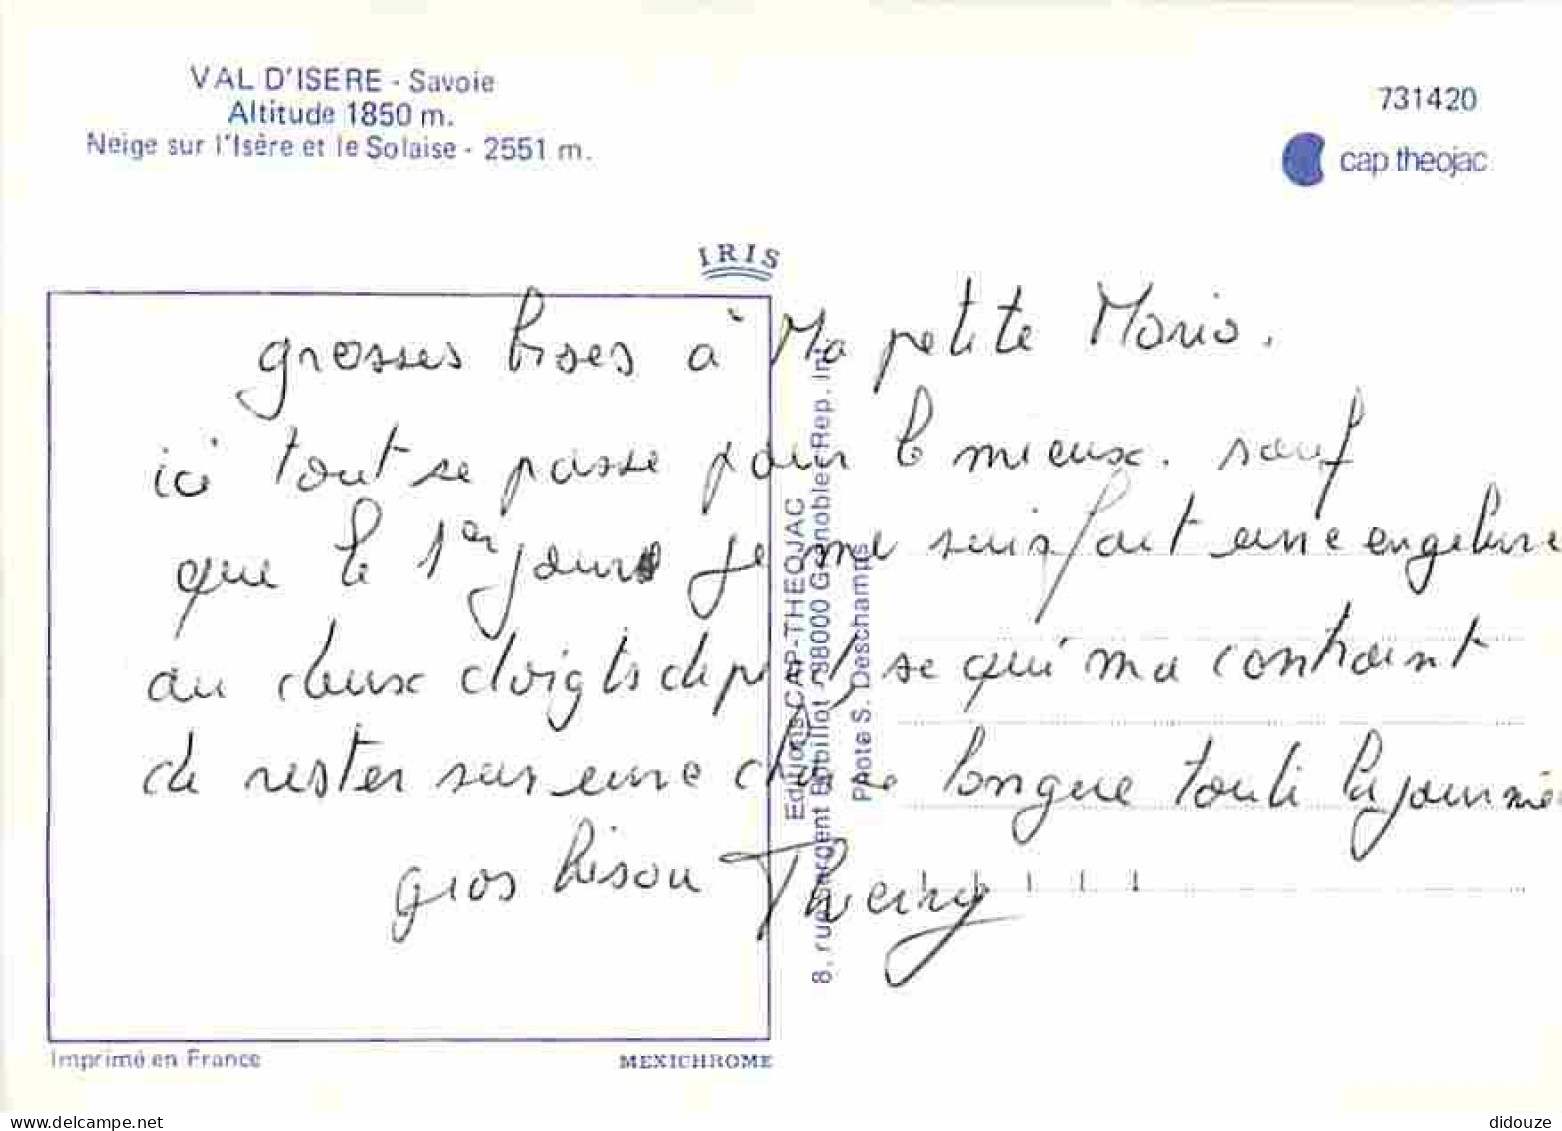 VAL D'ISERE - Savoie
Altitude 1850 m.
Neige sur l'Isère et le Solaise - 2551 m.
731420
cap theojac
IRIS
grosses bises à Ma petite Maria.
ici tout se passe pour le mieux. sauf
que le 1er jours je me suis fait une engelure
au deux doigts de pied, se qui ma contraint
de rester sur une chaise longue toute la journée
gros bisou Thierry
Editions CAP-THEOJAC
8, rue Sergent Bobillot - 38000 Grenoble Rep. Int.
Photo S. Deschamps
Imprimé en France
MEXICHROME
www.delcampe.net
didouze